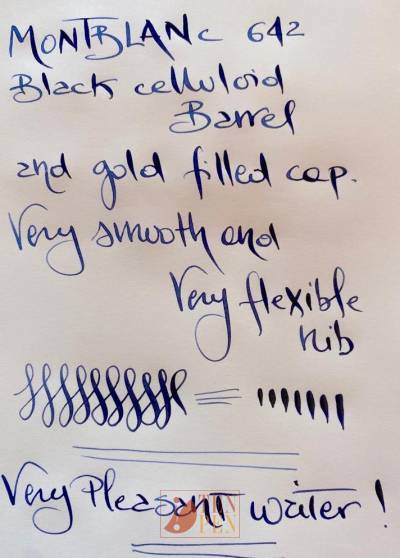 MONTBLANC 642
Black celluloid
Barrel
and gold filled cap.
Very smooth and
Very flexible
nib
Very Pleasant writer!
TEN
PEN